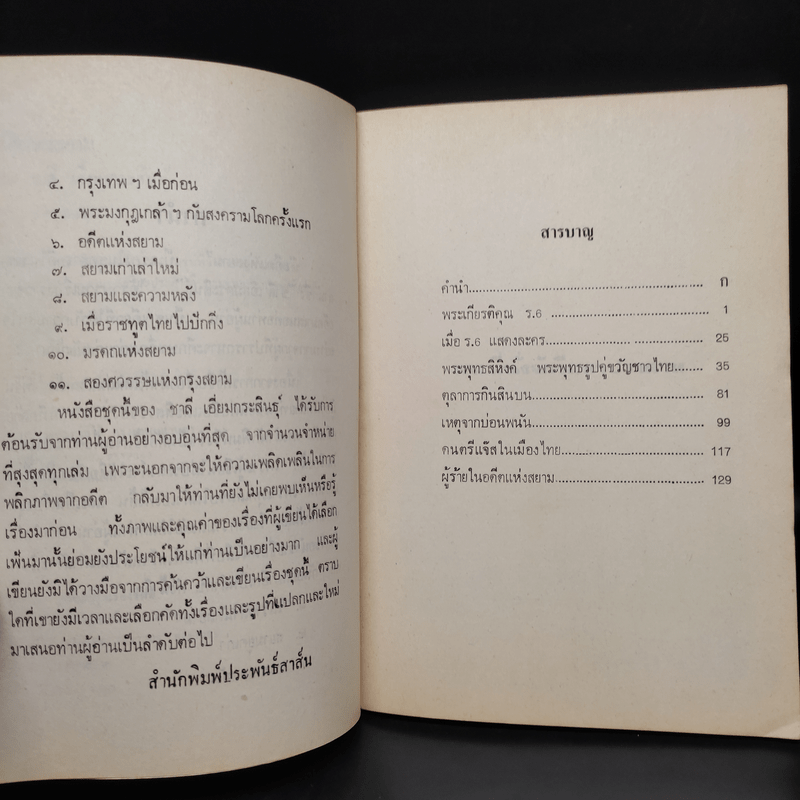 ๔. กรุงเทพ ฯ เมื่อก่อน
๕. พระมงกุฎเกล้า ฯ กับสงครามโลกครั้งแรก
๖. อดีตแห่งสยาม
๗. สยามเก่าเล่าใหม่
๘. สยามและความหลัง
๙. เมื่อราชทูตไทยไปปักกิ่ง
๑๐. มรดกแห่งสยาม
๑๑. สองศวรรษแห่งกรุงสยาม
หนังสือชุดนี้ของ ชาลี เอี่ยมกระสินธุ์ ได้รับการ
ต้อนรับจากท่านผู้อ่านอย่างอบอุ่นที่สุด จากจำนวนจำหน่าย
ที่สูงสุดทุกเล่ม เพราะนอกจากจะให้ความเพลิดเพลินในการ
พลิกภาพจากอดีต กลับมาให้ท่านที่ยังไม่เคยพบเห็นหรือรู้
เรื่องมาก่อน ทั้งภาพและคุณค่าของเรื่องที่ผู้เขียนได้เลือก
เฟ้นมานั้นย่อมยังประโยชน์ให้แก่ท่านเป็นอย่างมาก และผู้
เขียนยังมิได้วางมือจากการค้นคว้าและเขียนเรื่องชุดนี้ ตราบ
ใดที่เขายังมีเวลาและเลือกคัดทั้งเรื่องและรูปที่แปลกและใหม่
มาเสนอท่านผู้อ่านเป็นลำดับต่อไป
สำนักพิมพ์ประพันธ์สาส์น
สารบาญ
คำนำ........ ก
พระเกียรติคุณ ร.6 ........ 1
เมื่อ ร.6 แสดงละคร........ 25
พระพุทธสิหิงค์ พระพุทธรูปคู่ขวัญชาวไทย....... 35
ตุลาการกินสินบน........ 81
เหตุจากบ่อนพนัน........ 99
ดนตรีแจ๊สในเมืองไทย........ 117
ผู้ร้ายในอดีตแห่งสยาม........ 129